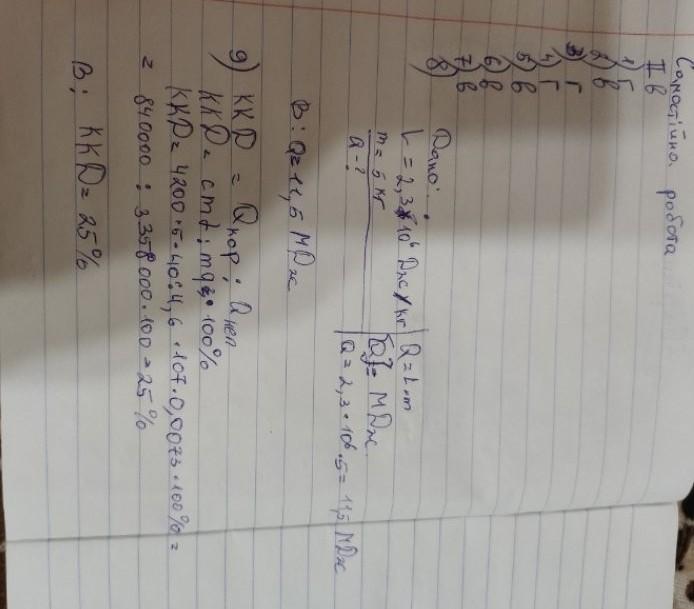 Самостійна робота
II в
1) Г
2) в
3) Г
4) Г
5) в
6) в
7) в
8) Дано:
L = 2,3 · 10⁶ Дж/кг
m = 5 кг
Q - ?
Q = L · m
[Q] = МДж
Q = 2,3 · 10⁶ · 5 = 11,5 МДж
В: Q = 11,5 МДж
9) ККД = Qкор : Qнеп
ККД = cmt : mq · 100%
ККД = 4200 · 5 · 40 : 4,6 · 107 · 0,0073 · 100% =
= 840000 : 3358000 · 100 = 25%
В: ККД = 25%